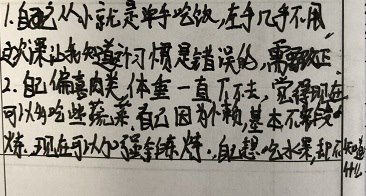 1.自己从小就是单手吃饭,左手几乎不用
这次课让我知道这习惯是错误的,需要改正
2.自己偏喜肉类,体重一直下不去,觉得现在
可以多吃些蔬菜。自己因为懒,基本不锻
炼,现在可以加强锻炼,自己想吃水果,却不知道
什么